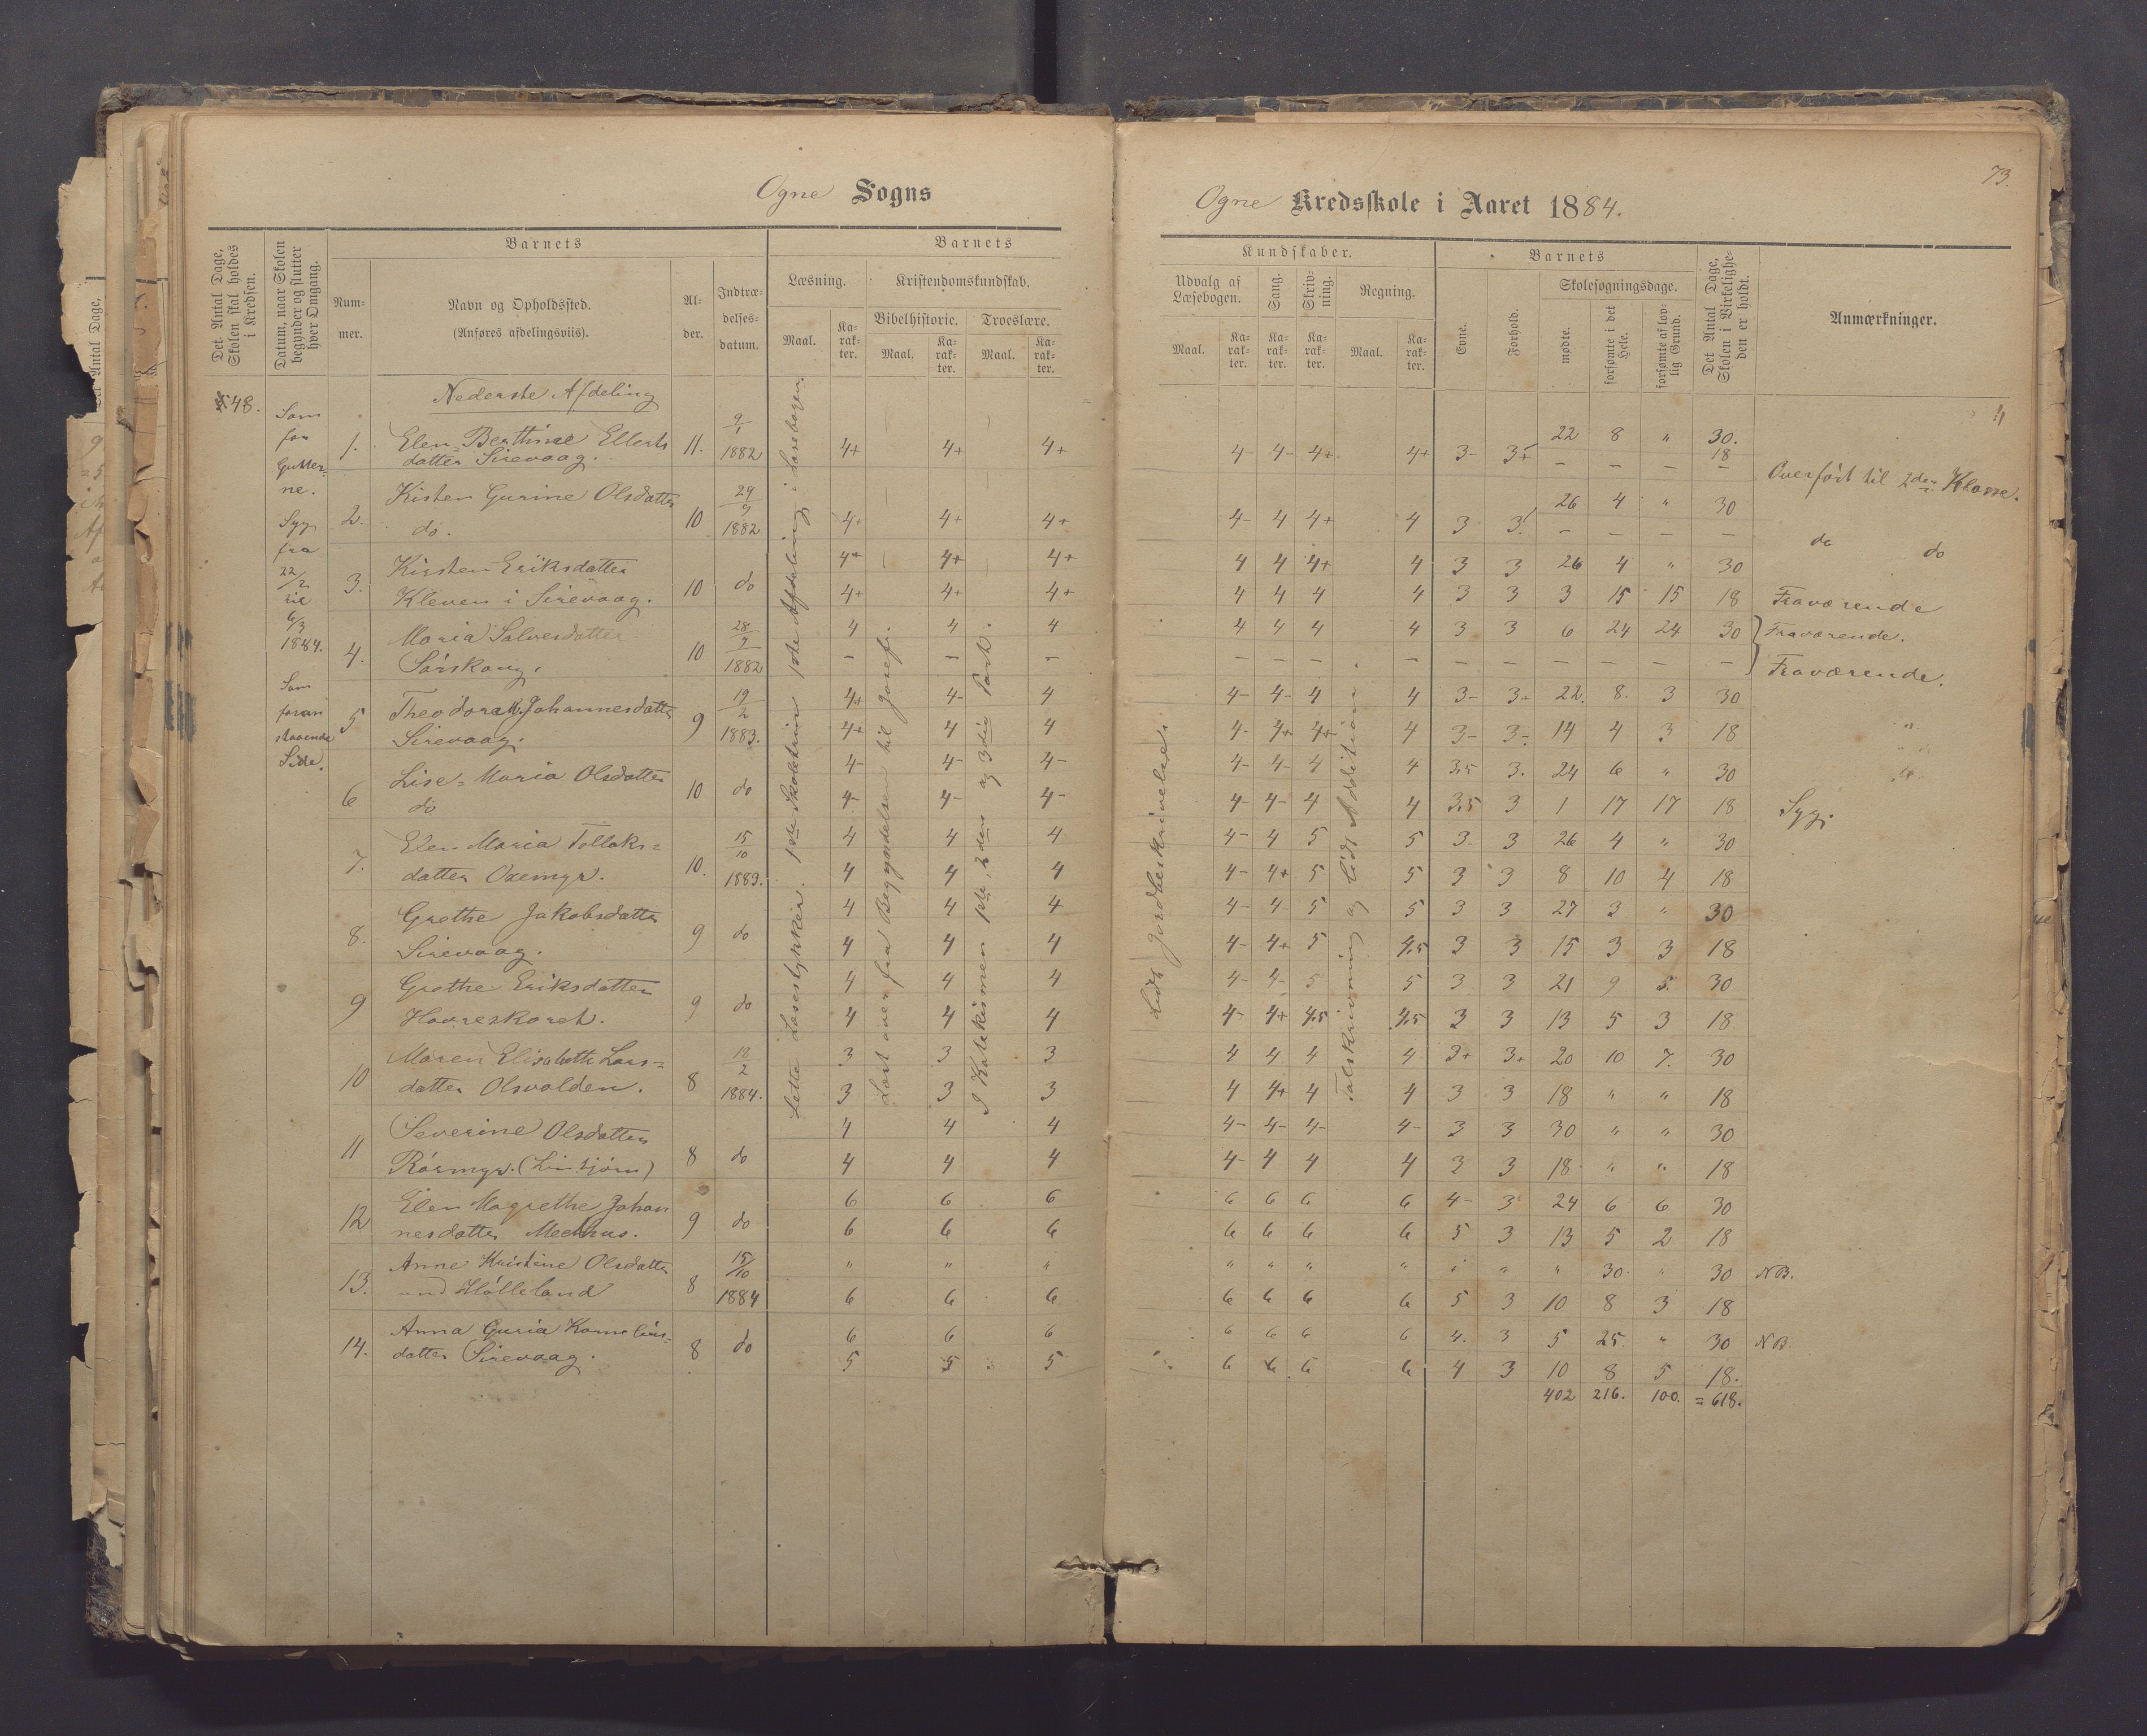 Ogne Sogns
Det Antal Dage, Skolen skal holdes i Kredsen.
Datum, naar Skolen begynder og slutter hver Omgang.
Barnets
Nummer.
Navn og Opholdssted.
(Anføres afdelingsviis).
Alder.
Indtrædelsesdatum.
Barnets
Læsning.
Kristendomskundskab.
Bibelhistorie.
Troeslære.
Maal.
Karakter.
Maal.
Karakter.
Maal.
Karakter.
48.
Som
for
Gutter-
ne.
Syg
fra
22/2
til
6/3
1884.
Som
foran
staaende
Side.
Nederste Afdeling
1. Elen Berthine Ellerts
datter Sirevaag. 11. 9/1 1882 4+ 4+ 4+
2. Kisten Gurine Olsdatter
do. 10 29/9 1882 4+ 4+ 4+
3. Kirsten Eriksdatter 4+ 4+ 4+
Kleven i Sirevaag. 10 do 4+ 4+ 4+
4. Maria Salvesdatter 4 4 4
Sørskaug. 10 28/9 1882 – – –
5 Theodora M. Johannesdatter 4+ 4- 4
Sirevaag. 9 19/2 1883. 4+ 4 4
6 Lise=Maria Olsdatter 4- 4- 4-
do 10 do 4- 4- 4-
7. Elen Maria Tollaks= 4 4 4
datter Oxemyr. 10. 15/10 1883. 4 4 4
8. Grethe Jakobsdatter 4 4 4
Sirevaag. 9 do 4 4 4
9 Grethe Eriksdatter 4 4 4
Havreskaret. 9 do 4 4 4
10 Maren Elisabeth Lars= 3 3 3
datter Olsvolden. 8 18/2 1884. 3 3 3
11 Severine Olsdatter 4 4 4
Rosmyr. 8 do 4 4 4
12 Elen Magrethe Johan 6 6 6
nesdatter Medhus. 9 do 6 6 6
13. Anne Kristine Olsdatter " " "
Hølleland 8 15/10 1884 6 6 6
14. Anna Guria Kornelius= 6 6 6
datter Sirevaag. 8 do 5 5 5
Lette Læsestykker. 1ste Skoletrin 1ste Afdeling i Læsebogen.
Læst over fra Begyndelsen til Josef.
I Katekismen 1ste, 2den og 3die Part.
73.
Ogne Kredsskole i Aaret 1884.
Kundskaber.
Udvalg af Læsebogen.
Sang.
Skrivning.
Regning.
Maal.
Karakter.
Karakter.
Karakter.
Maal.
Karakter.
Barnets
Evne.
Forhold.
Skolesøgningsdage.
mødte.
forsømte i det Hele.
forsømte af lovlig Grund.
Det Antal Dage, Skolen i Virkeligheden er holdt.
Anmærkninger.
4- 4- 4+ 4+ 3- 3+ 22 8 " 30.
– – – 18 Overført til 2den Klasse.
4- 4 4+ 4 3 3 26 4 " 30
– – – – do do
4 4 4+ 4 3 3 26 4 " 30
4 4 4 4 3 3 3 15 15 18 Fraværende
4 4 4 4 3 3 6 24 24 30 Fraværende.
– – – – – – – – – – Fraværende.
4- 4- 4 4 3- 3+ 22. 8. 3 30
4- 4+ 4+ 4 3- 3- 14 4 3 18
4- 4- 4 4 3,5 3. 24 6 " 30
4- 4- 4 4 3,5 3 1 17 17 18 Syg.
4- 4 5 5 3- 3 26 4 " 30
4- 4+ 5 5 3 3 8 10 4 18
4- 4- 5 5 3 3 27 3 " 30
4- 4+ 5 4,5 3 3 15 3 3 18
4- 4- 5 5 3 3 21 9 5. 30
4- 4+ 4,5 4,5 3 3 13 5 3 18
4 4 4 4 3+ 3+ 20 10 7. 30
4 4+ 4 4 3 3 18 " " 18
4- 4- 4- 4- 3 3 30 " " 30
4- 4 4 4 3 3 18 " " 18
6 6 6 6 4- 3 24 6 6 30
6 6 6 6 5 3 13 5 2 18
" " " " " " " 30 " 30 NB.
6 6 6 6 5 3 10 8 3 18
6 6 6 6 4. 3 5 25 " 30 NB.
6 6 6 6 4 3 10 8 5 18.
402 216. 100. =618.
Lidt Jordbeskrivelse.
Talskrivning og lidt Addition.